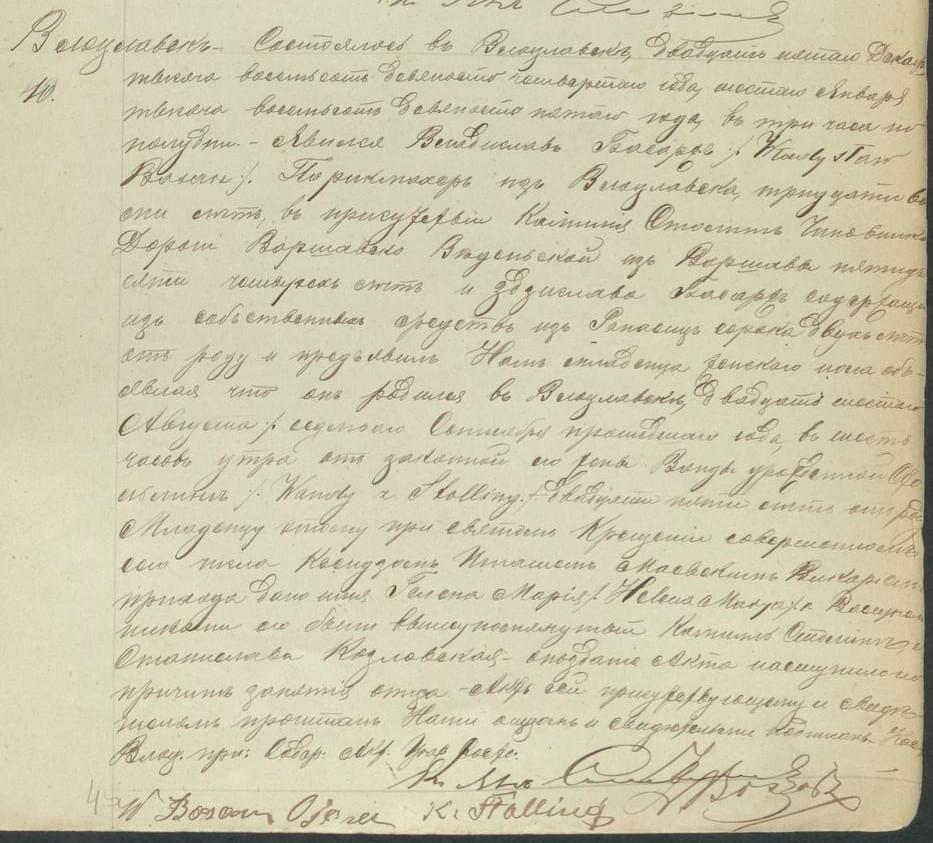 Влоцлавскъ
10.
Состоялось въ Влоцлавскѣ, двадцать пятаго Декабря
тысяча восемьсотъ девяносто четвертаго года, шестаго Января
тысяча восемьсотъ девяносто пятаго года, въ три часа по
полудни. – Явился Владиславъ /: Władysław
:/. Парикмахеръ изъ Влоцлавска, тридцати во
сьми лѣтъ, въ присутствіи Камилля Чиновника
Дороги Варшавско Вѣденьской изъ Варшавы пятиде
сяти четырехъ лѣтъ и Здзислава содержащаго
изъ собственныхъ средствъ изъ сорока двухъ лѣтъ
отъ роду и предъявилъ Намъ младенца женскаго пола объ-
являя что онъ родился въ Влоцлавскѣ, двадцать шестаго
Августа /: седьмаго Сентября прошедшаго года, въ шесть
часовъ утра отъ законной его жены Ванды урожденной
/: Wandy z Stolling :/ двадцати пяти лѣтъ отъ роду
Младенцу этому при святомъ Крещеніи совершенномъ
сего числа Ксендзомъ Маевскимъ Викаріемъ
прихода дано имя Гелена Марія /: Helena Marya :/ а Воспріем-
никами его были вышеупомянутый Камилль и
Станислава Козловская – опозданіе Акта наступило по
причинѣ занятія отца – Актъ сей присутствующему и свидѣ-
телямъ прочитанъ Нами отцемъ и свидѣтелями подписанъ
Влоц. при: Акт. Гра.
W. Ojciec K. Stolling